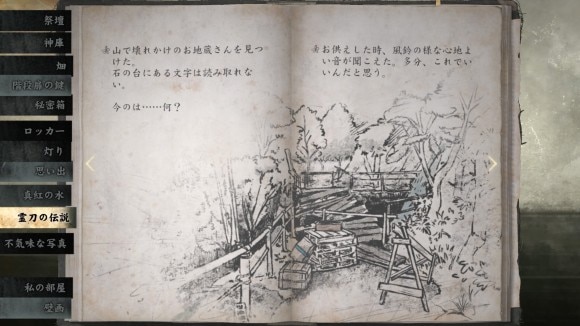 祭壇
神庫
畑
階段扉の鍵
秘密箱
ロッカー
灯り
思い出
真紅の水
霊刀の伝説
不気味な写真
私の部屋
壁画
山で壊れかけのお地蔵さんを見つ
けた。
石の台にある文字は読み取れな
い。
今のは……何？
お供えした時、風鈴の様な心地よ
い音が聞こえた。多分、これでい
いんだと思う。